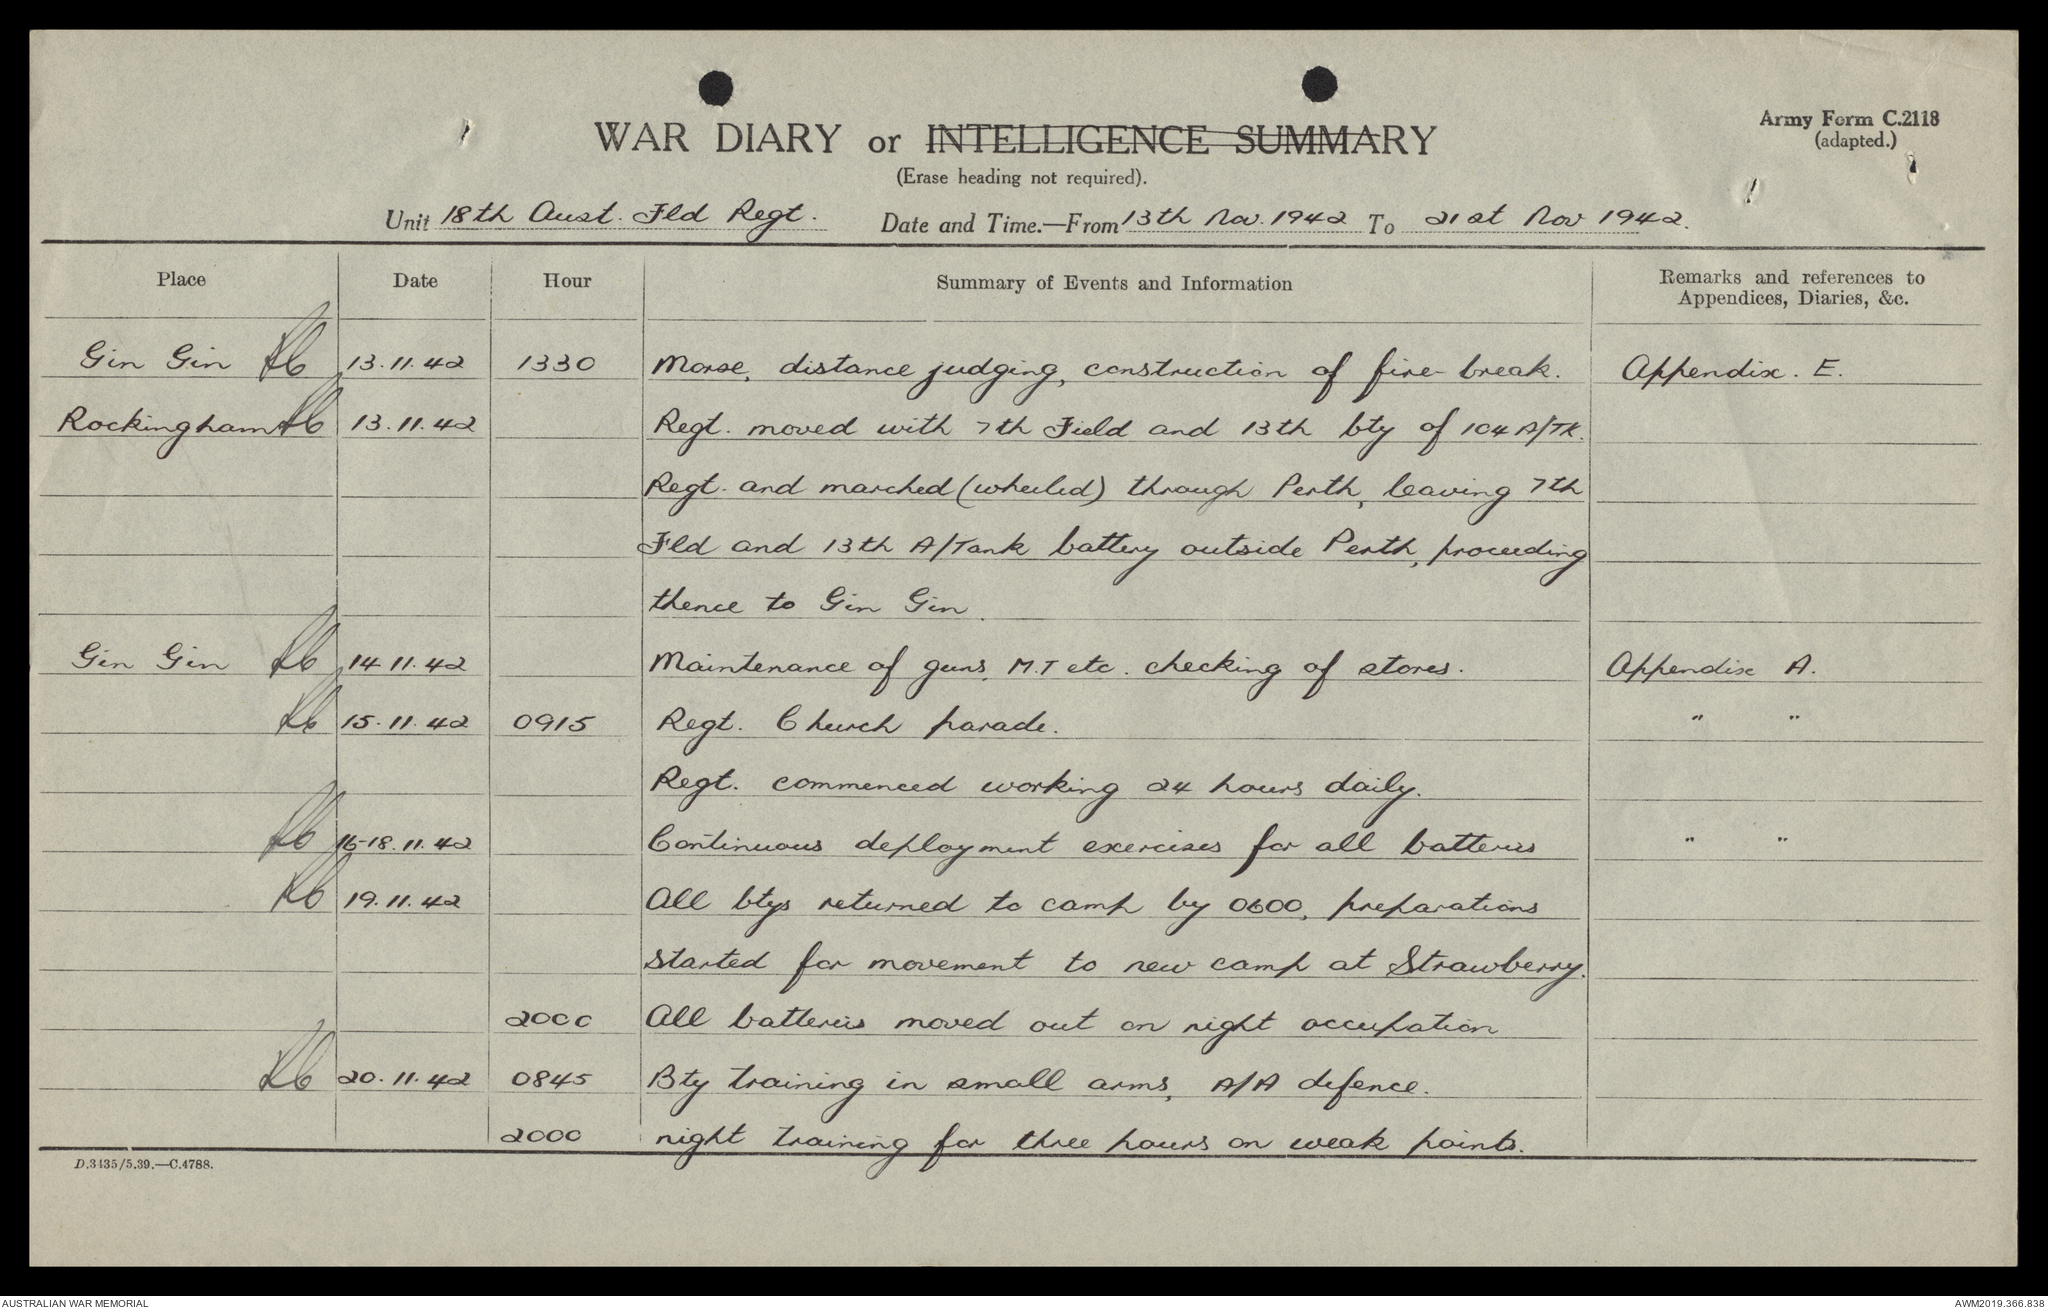 Army Form C.2118
(adapted.)
WAR DIARY or INTELLIGENCE SUMMARY
(Erase heading not required).
Unit 18th Aust. Fld Regt. Date and Time.—From 13th Nov. 1942 To 21st Nov 1942.
Place Date Hour Summary of Events and Information Remarks and references to
Appendices, Diaries, &c.
Gin Gin 13.11.42 1330 Morse, distance judging, construction of fire-break. Appendix. E.
Rockingham 13.11.42 Regt. moved with 7th Field and 13th bty of 104 A/TK.
Regt. and marched (wheeled) through Perth, leaving 7th
Fld and 13th A/Tank battery outside Perth, proceeding
thence to Gin Gin.
Gin Gin 14.11.42 Maintenance of guns, M.T etc. checking of stores. Appendix A.
15.11.42 0915 Regt. Church parade. " "
Regt. commenced working 24 hours daily.
16-18.11.42 Continuous deployment exercises for all batteries " "
19.11.42 All btys returned to camp by 0600, preparations
started for movement to new camp at Strawberry.
2000 All batteries moved out on night occupation
20.11.42 0845 Bty training in small arms, A/A defence.
2000 night training for three hours on weak points.
D.3435/5.39.—C.4788.
AUSTRALIAN WAR MEMORIAL AWM2019.366.838